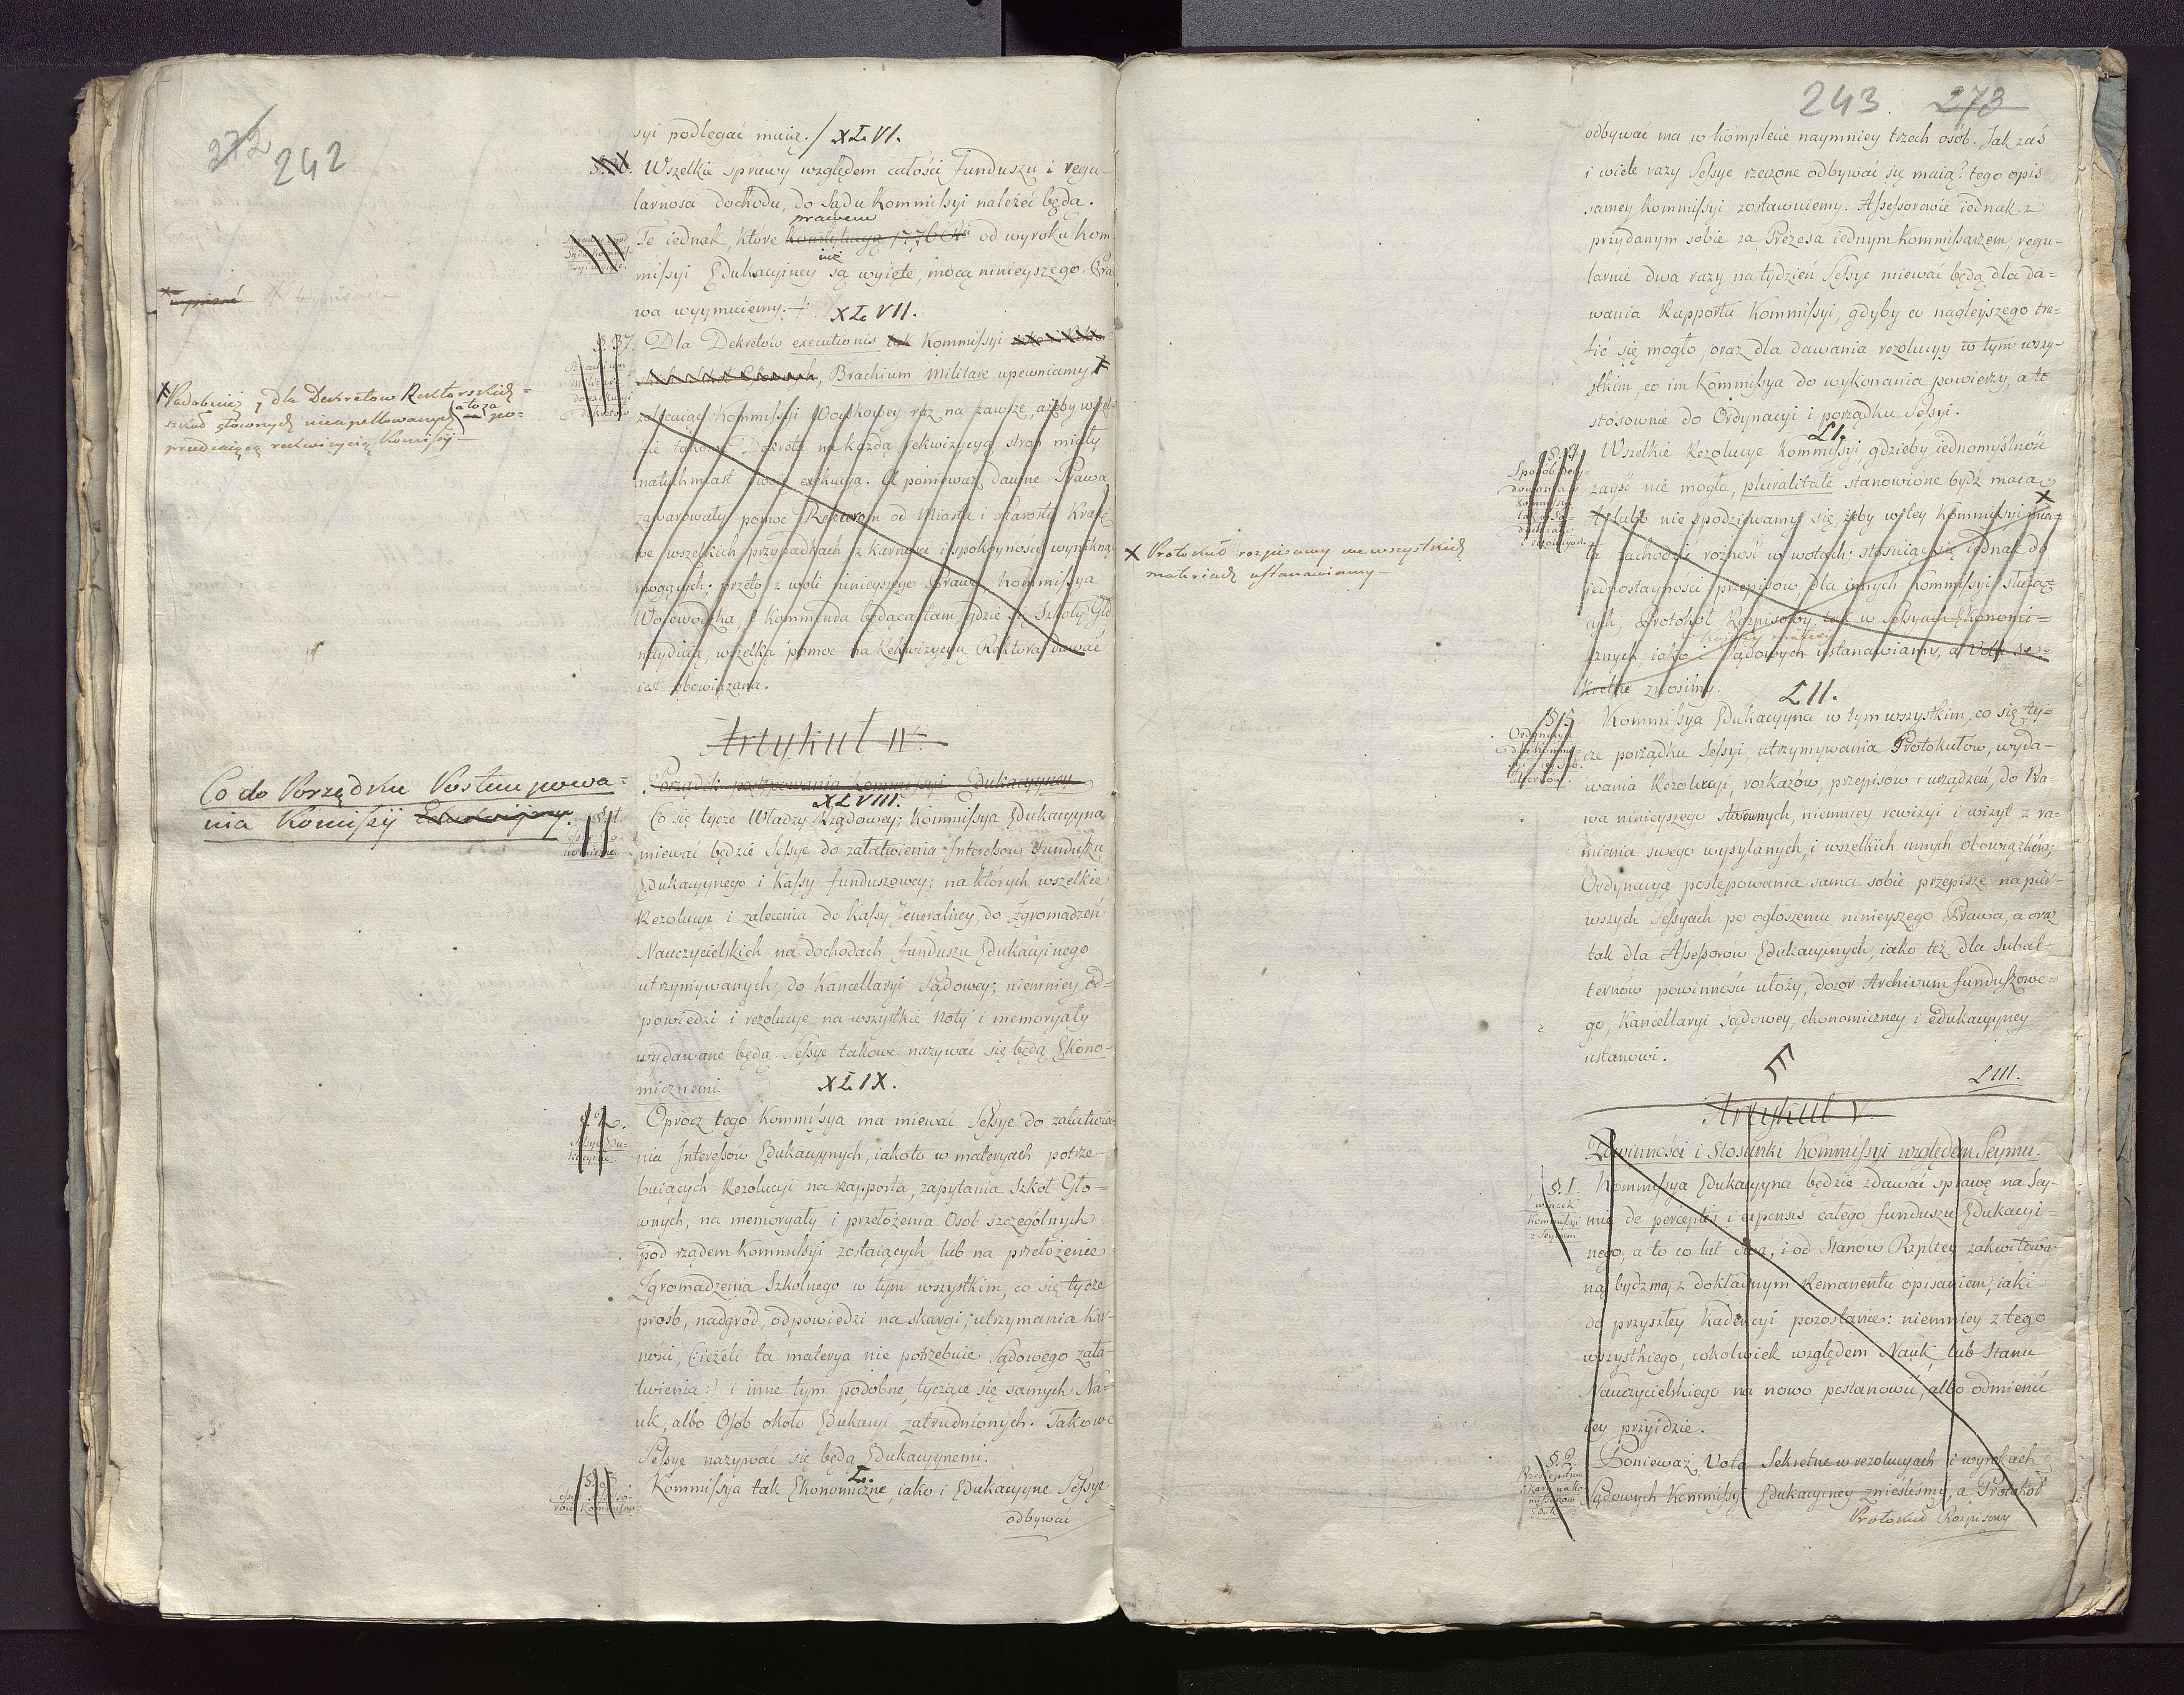 272
242
syi podlegać maią. / XLVI.
Wszelkie sprawy względem całości Funduszu i regu-
larności dochodu, do Sądu Kommissyi należeć będą.
prawem
Te iednak, które konstytucyą 1776 od wyroku Kom-
iuż
missyi Edukacyiney są wyięte, mocą ninieyszego Pra-
wa wyymuiemy. XLVII.
§. 37. Dla Dekretów executionis Kommissyi
Brachium Militare upewniamy X
zalecaiąc Kommissyi Woyskowey raz na zawsze, ażeby wszel-
kie takowe Dekreta na każdą rekwizycyą stron miały
natychmiast swoią exekucyą. A ponieważ dawne Prawa
zawarowały pomoc Rektorom od Miasta i Starosty
we wszelkich przypadkach z karności i spokoyności wyniknąć
mogących; przeto z woli ninieyszego Prawa Kommissya
Woiewodzka, i Kommenda będąca tam, gdzie się Szkoły Głó.
znayduią, wszelką pomoc na Rekwizycyą Rektora dawać
iest obowiązana.
X Podobnież y dla Dekretow Rektorskich
szkuł głównych nieapellowanych a to za po-
przedzaiącą rekwizycią Komissyi
Artykuł IV.
Porządek postępowania Kommissyi Edukacyyney
Co do Porządku Postempowa=
nia Komissyi Edukacyjney.
XLVIII.
§. 1. Co się tycze Władzy Rządowey; Kommissya Edukacyyna
miewać będzie Sessye do załatwienia Interessow Funduszu
Edukacyynego i Kassy funduszowey; na których wszelkie
Rezolucye i zalecenia do Kassy Jeneralney, do Zgromadzeń
Nauczycielskich na dochodach funduszu Edukacyinego
utrzymywanych, do Kancellaryi Sądowey; niemniey od=
powiedzi i rezolucye na wszystkie Noty i memoryały
wydawane będą. Sessye takowe nazywać się będą Ekono-
micznemi. XLIX.
§. 2. Oprocz tego Kommissya ma miewać Sessye do załatwia-
nia Interessów Edukacyynych, iakoto w materyach potrze-
buiących Rezolucyi na rapporta, zapytania Szkół Głó=
wnych, na memoryały i przełożenia Osób szczególnych
pod rządem Kommissyi zostaiących, lub na przełożenie
Zgromadzenia Szkolnego w tym wszystkim, co się tycze
prosb, nadgród, odpowiedzi na skargi, utrzymania kar-
ności, (:ieżeli ta materya nie potrzebuie Sądowego zała-
twienia:) i inne tym podobne, tyczące się samych Na-
uk, albo Osób około Edukacyi zatrudnionych. Takowe
Sessye nazywać się będą Edukacyynemi.
L.
Kommissya tak Ekonomiczne, iako i Edukacyyne Sessye
odbywać
243 273
odbywać ma w komplecie naymniey trzech osób. Jak zaś
i wiele razy Sessye rzeczone odbywać się maią? tego opis
samey Kommissyi zostawuiemy. Assessorowie iednak z
przydanym sobie za Prezesa iednym Kommissarzem, regu-
larnie dwa razy na tydzień Sessye miewać będą dla da=
wania Rapportu Kommissyi, gdyby co nagleyszego tra=
fić się mogło, oraz dla dawania rezolucyy w tym wszy-
stkim, co im Kommissya do wykonania powierzy, a to
stósownie do Ordynacyi i porządku Sessyi.
LI.
Wszelkie Rezolucye Kommissyi, gdzieby iednomyślność
zayść nie mogła, pluralitate stanowione bydź maią
A lubo nie spodziewamy się, żeby w tey Kommissyi mia-
ła zachodzić różność w wotach; stósuiąc się iednak do
iednostayności przepisów, dla innych Kommissyi służą=
cych; Protokół Rozpisowy, tak w Sessyach Ekonomi=
w każdey materyi
cznych, iako i Sądowych ustanawiamy, a Vota se=
kretne znosimy.
X Protokuł rozpisowy we wszystkich
materiach ustanawiamy
LII.
§. 5. Kommissya Edukacyyna w tym wszystkim, co się ty=
cze porządku Sessyi, utrzymywania Protokułów, wyda-
wania Rezolucyi, rozkazów, przepisow i urządzeń, do Pra-
wa ninieyszego stósownych, niemniey rewizyi i wizyt z ra-
mienia swego wysyłanych, i wszelkich innych obowiązków;
Ordynacyą postępowania sama sobie przepisze na pier-
wszych Sessyach po ogłoszeniu ninieyszego Prawa, a oraz
tak dla Assessorow Edukacyinych, iako też dla Subal-
ternów powinność ułoży, dozor Archivum funduszowe=
go, Kancellaryi sądowey, ekonomiczney i edukacyyney
ustanowi.
LIII.
Artykuł V.
Powinności i Stosunki Kommissyi względem Seymu.
§. 1. Kommissya Edukacyyna będzie zdawać sprawę na Sey-
mie de perceptis i expensis całego funduszu Edukacyi=
nego, a to co lat dwa, i od Stanów Rzpltey zakwitowa-
ną bydź ma, z dokładnym Remanentu opisaniem, iaki
do przyszłey Kadencyi pozostanie: niemniey z tego
wszystkiego, cokolwiek względem Nauk lub Stanu
Nauczycielskiego na nowo postanowić, albo odmienić
iey przyidzie.
§. 2. Ponieważ Vota Sekretne w rezolucyach i wyrokach
Sądowych Kommissyi Edukacyiney znieśliśmy, a Protokół
Protokuł Rozpisowy